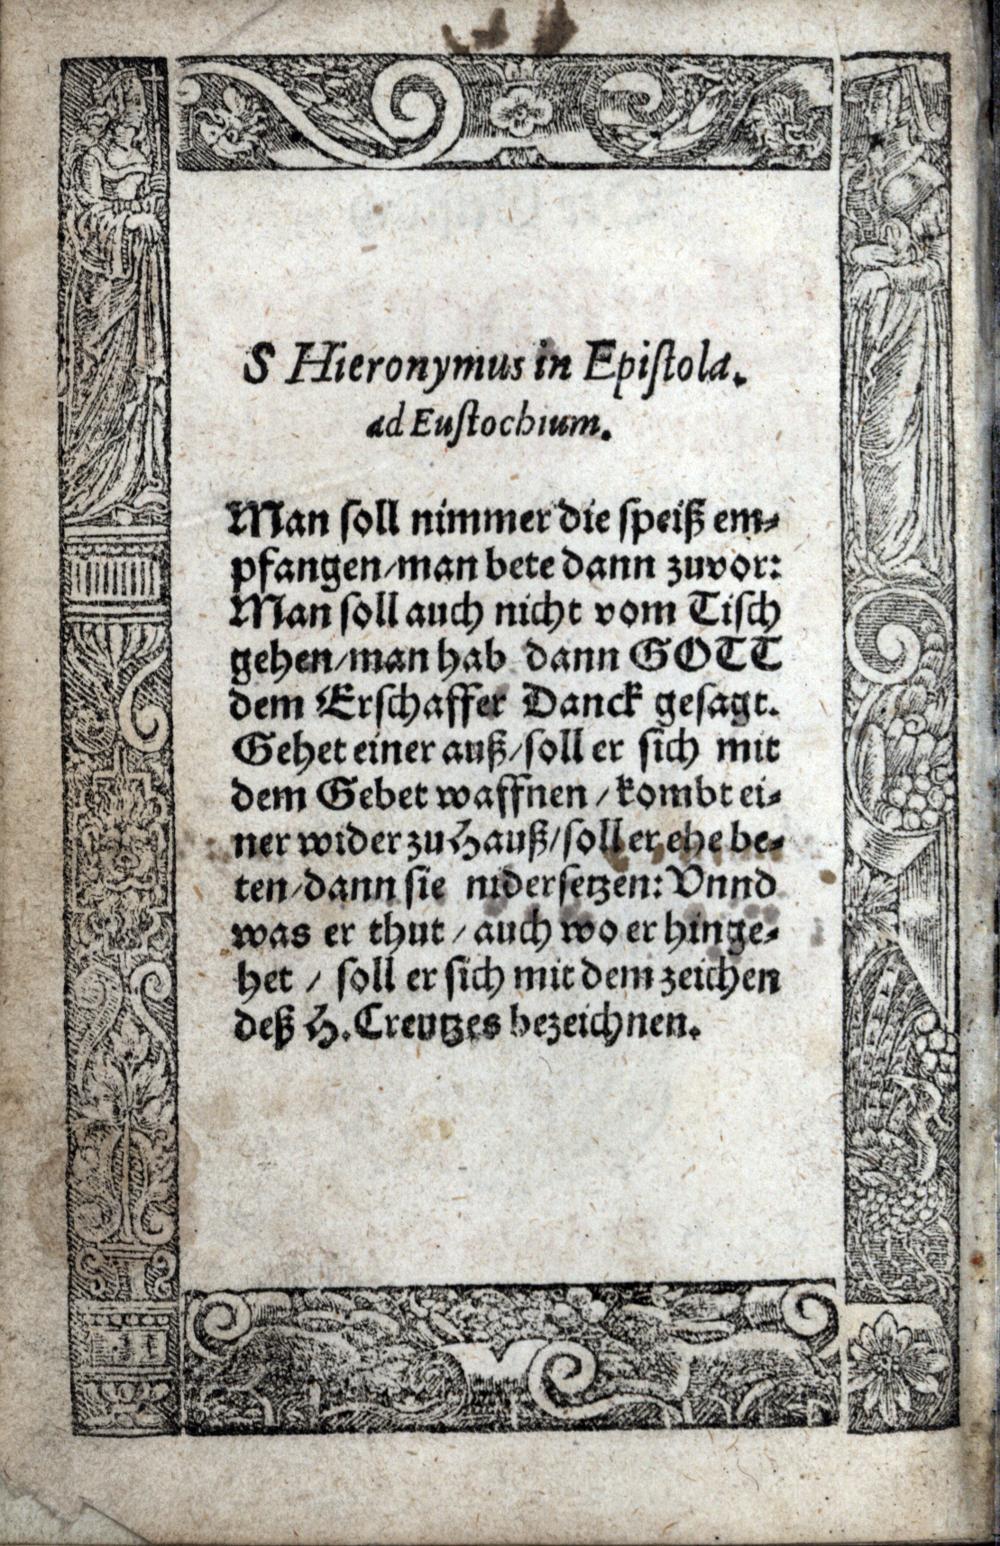 S Hieronymus in Epiſtola.
ad Euſtochium.
Man ſoll nimmer die ſpeiß em⸗
pfangen/man bete dann zuvor:
Man ſoll auch nicht vom Tiſch
gehen/man hab dann GOTT
dem Erſchaffer Danck geſagt.
Gehet einer auß/ſoll er ſich mit
dem Gebet waffnen / kombt ei⸗
ner wider zu Hauß/ſoll er ehe be⸗
ten/dann ſie niderſetzen: Vnnd
was er thut / auch wo er hinge⸗
het / ſoll er ſich mit dem zeichen
deß H. Creutzes bezeichnen.